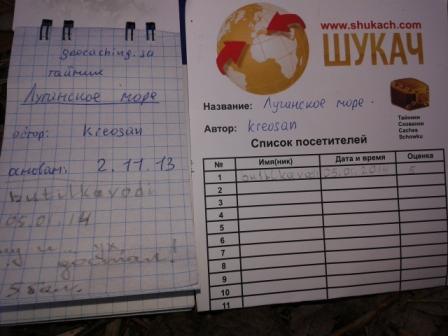 geocaching.su
тайник
Луганское море
автор: Kreosan
основан: 2.11.13
butilkavodi
05.01.14
достал!
www.shukach.com
ШУКАЧ
Название: Луганское море.
Автор: kreosan
Тайники
Схованки
Caches
Schowku
Список посетителей
№ Имя(ник) Дата и время Оценка
1 butilkavodi 05.01.2014 5
2
3
4
5
6
7
8
9
10
11